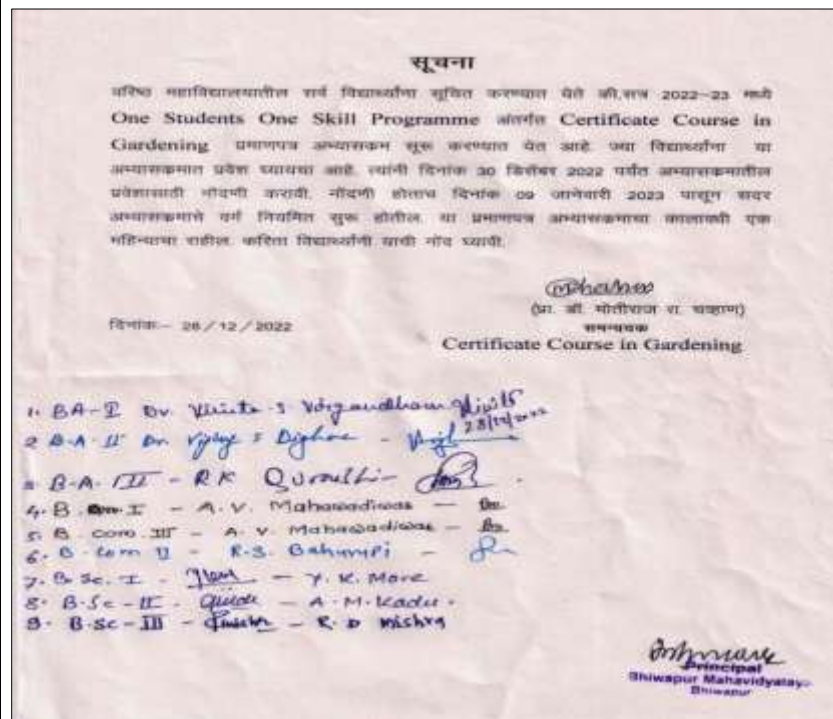 सूचना
वरिष्ठ महाविद्यालयातील सर्व विद्यार्थ्यांना सूचित करण्यात येते की,सत्र 2022-23 मध्ये
One Students One Skill Programme अंतर्गत Certificate Course in
Gardening प्रमाणपत्र अभ्यासक्रम सुरू करण्यात येत आहे. ज्या विद्यार्थ्यांना या
अभ्यासक्रमात प्रवेश घ्यायचा आहे. त्यांनी दिनांक 30 डिसेंबर 2022 पर्यंत अभ्यासक्रमातील
प्रवेशासाठी नोंदणी करावी. नोंदणी होताच दिनांक 09 जानेवारी 2023 पासून सदर
अभ्यासक्रमाचे वर्ग नियमित सुरू होतील. या प्रमाणपत्र अभ्यासक्रमाचा कालावधी एक
महिन्याचा राहील. करिता विद्यार्थ्यांनी याची नोंद घ्यावी.
(प्रा. डॉ. मोतीराज रा. चव्हाण)
दिनांक:- 28/12/2022
समन्वयक
Certificate Course in Gardening
1. BA-I Dr.
28/12/2022
2 B-A-II Dr. Vijay S Dighore -
3 B-A-III - R K Quraishi -
4. B. Com. I - A. V. Mahawadiwar -
5. B. com. III - A. V. Mahawadiwar -
6. B. Com II - R.S. Bahurupi -
7. B. Sc. I - - Y. K. More
8. B-Sc-II - - A. M. Kadu.
9. B-Sc-III - - R. D Mishra
Principal
Bhiwapur Mahavidyalay
Bhiwapur